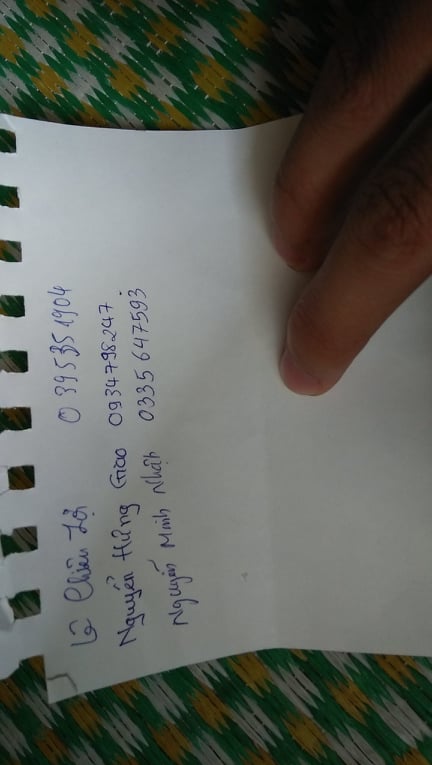 Lê Chiêu Lợi 0395351904
Nguyễn Hứng Giao 0934798247
Nguyễn Minh Nhật 0335647593